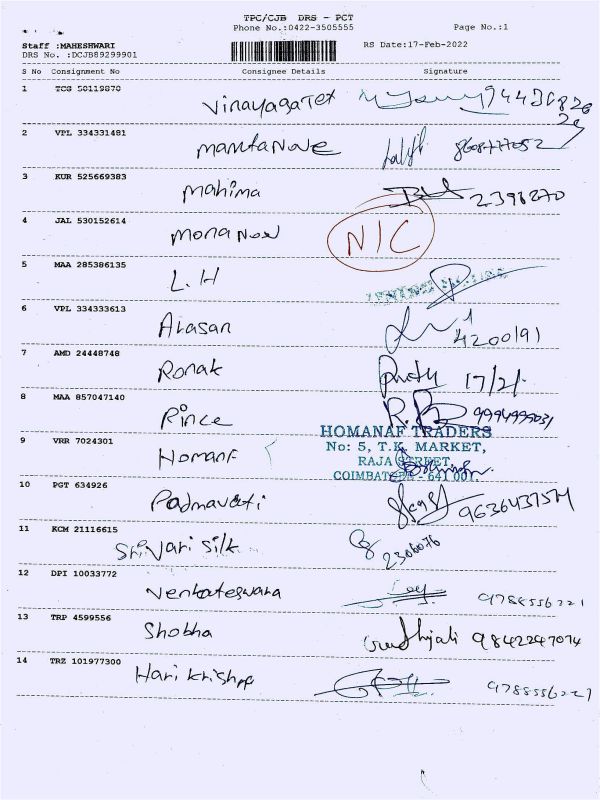 TPC/CJB DRS - PCT
Phone No.:0422-3505555 Page No.:1
Staff :MAHESHWARI RS Date:17-Feb-2022
DRS No. :DCJB89299901
S No Consignment No Consignee Details Signature
1 TCG 50119870 Vinayaga Tex
2 VPL 334331481 8608777052
3 KUR 525669383 Mahima 2398270
4 JAL 530152614 NIC
5 MAA 285386135 L.H
6 VPL 334333613 Alasan 4200191
7 AMD 24448748 Ronak 17/2/
8 MAA 857047140 Prince 9994999031
HOMANAF TRADERS
9 VRR 7024301 No: 5, T.K. MARKET,
Homanf RAJA STREET,
COIMBATORE - 641 001.
10 PGT 634926 Padmavati
11 KCM 21116615 Shivari Silk 2306076
12 DPI 10033772 Venkateswara 9788556221
13 TRP 4599556 Shobha 9842247074
14 TRZ 101977300 Hari krishna 9788556221